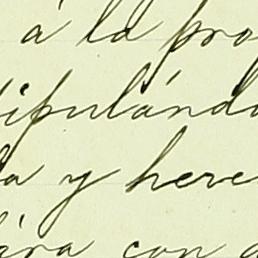 á la pro
tipulándo
la y here
ára con a